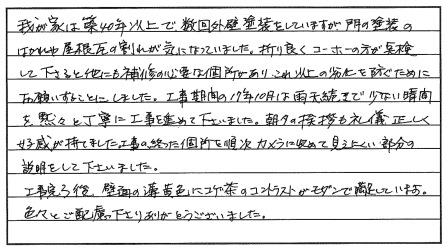 我が家は築40年以上で、数回外壁塗装をしていますが門の塗装の
はがれや屋根瓦の割れが気になっていました。折り良くコーホーの方が点検
して下さると他にも補修の必要な個所があり、これ以上の劣化を防ぐために
お願いすることにしました。工事期間の17年10月は雨天続きで少ない時間
を黙々と丁寧に工事を進めて下さいました。朝夕の挨拶も礼儀正しく
好感が持てました。工事の終った個所を順次カメラに収めて見えにくい部分の
説明をして下さいました。
工事完了後、壁面の薄黄色にコゲ茶のコントラストがモダンで満足しています。
色々とご配慮下さりありがとうございました。